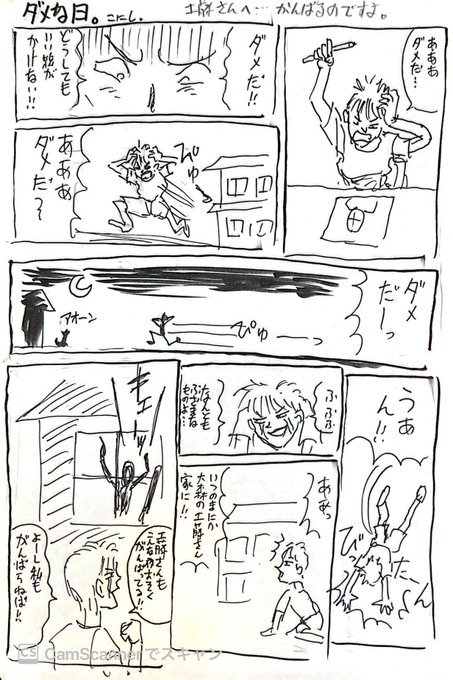 ダメな日。こにし。
工藤さんへ…がんばるのですよ。
あああ
ダメだ…
ダメだ!!
どうしても
いい物が
かけない!!
ぴゅー
あああ
ダメだ〜
ダメ
だーっ
ぴゅーーっ
アオーン
うあ
ん!!
びったーん
ぶぶぶ
なんとも
ぶざまな
ものよ…
ああっ
いつのまにか
大森の工藤さん
家に!!
キエーッ
工藤さんも
こんな夜おそく
がんばってる!!
よーし私も
がんばらねば!!
CS CamScannerでスキャン